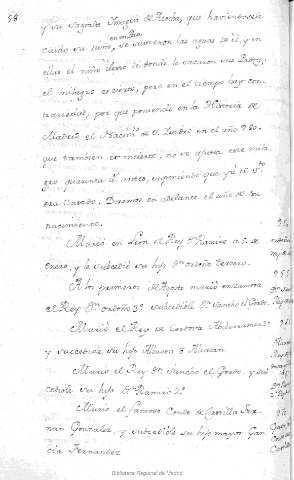 58
y su Sagrada Imagen de Atocha, que haviendosele
en un Pozo,
caido su niño, se subieron las aguas de él, y en
ellas el niño ileso de donde le sacaron sus Padres,
el milagro es cierto, pero en el tiempo hay con-
trariedad, por que poniendo en la Historia de
Madrid el Nacim.to de S. Isidro en el año 980.
que tambien es incierto, no se ajusta este mila-
gro quarenta a.s antes, suponiendo que ya el S.to
era Casado. Daremos en adelante el año de su
nacimiento.
Murió en Leon el Rey D.n Ramiro a 5. de
Enero, y le subcedió su hijo D.n Ordoño Tercero.
A los primeros de Agosto murió en Zamora
el Rey D.n Ordoño 3.º subcediole D.n Sancho el Gordo.
Murió el Rey de Cordova Abderramen
y succediole su hijo Alhacan
Murio el Rey D.n Sancho el Gordo, y sub
cediole su hijo D.n Ramiro 3.º
Murio el famoso Conde de Castilla Fer-
nan Gonzalez, y subcediole su hijo mayor Gar-
cia Fernandez
955
Biblioteca Regional de Madrid